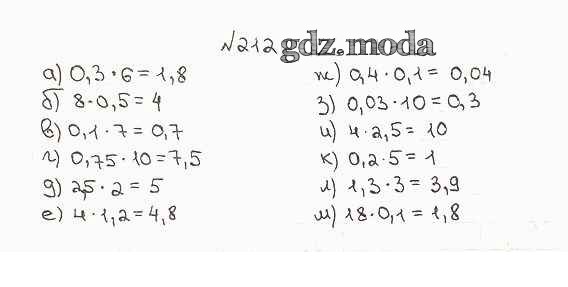 №212 gdz.moda
а) 0,3 · 6 = 1,8
б) 8 · 0,5 = 4
в) 0,1 · 7 = 0,7
г) 0,75 · 10 = 7,5
д) 2,5 · 2 = 5
е) 4 · 1,2 = 4,8
ж) 0,4 · 0,1 = 0,04
з) 0,03 · 10 = 0,3
и) 4 · 2,5 = 10
к) 0,2 · 5 = 1
л) 1,3 · 3 = 3,9
м) 18 · 0,1 = 1,8